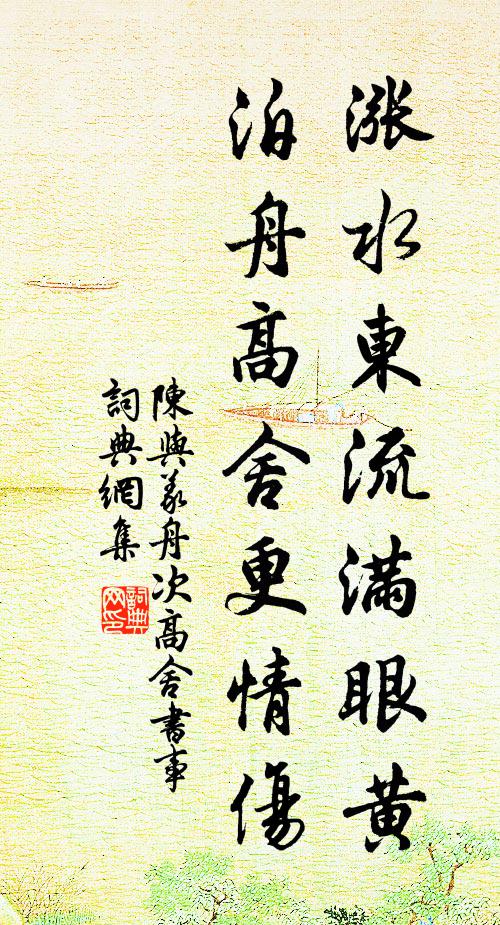 漲水東流滿眼黃
泊舟高舍更情傷
陳與義舟次高舍書事
詞典網集
詞典網印